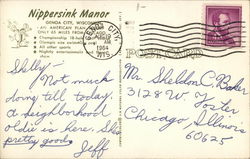 Nippersink Manor
GENOA CITY, WISCONSIN
AN AMERICAN PLAN
ONLY 65 MILES FROM
Championship 18-hole
Olympic size swimming
All other sports
Nightly entertainment
GENOA CITY
1964
WIS.
Shelly:
Not much
doing till today.
a neighborhood
oldie is here. She
pretty good
Jeff
POST CARD
Mr. Sheldon C. Baker
3128 W. Foster
Chicago Illinois
60625